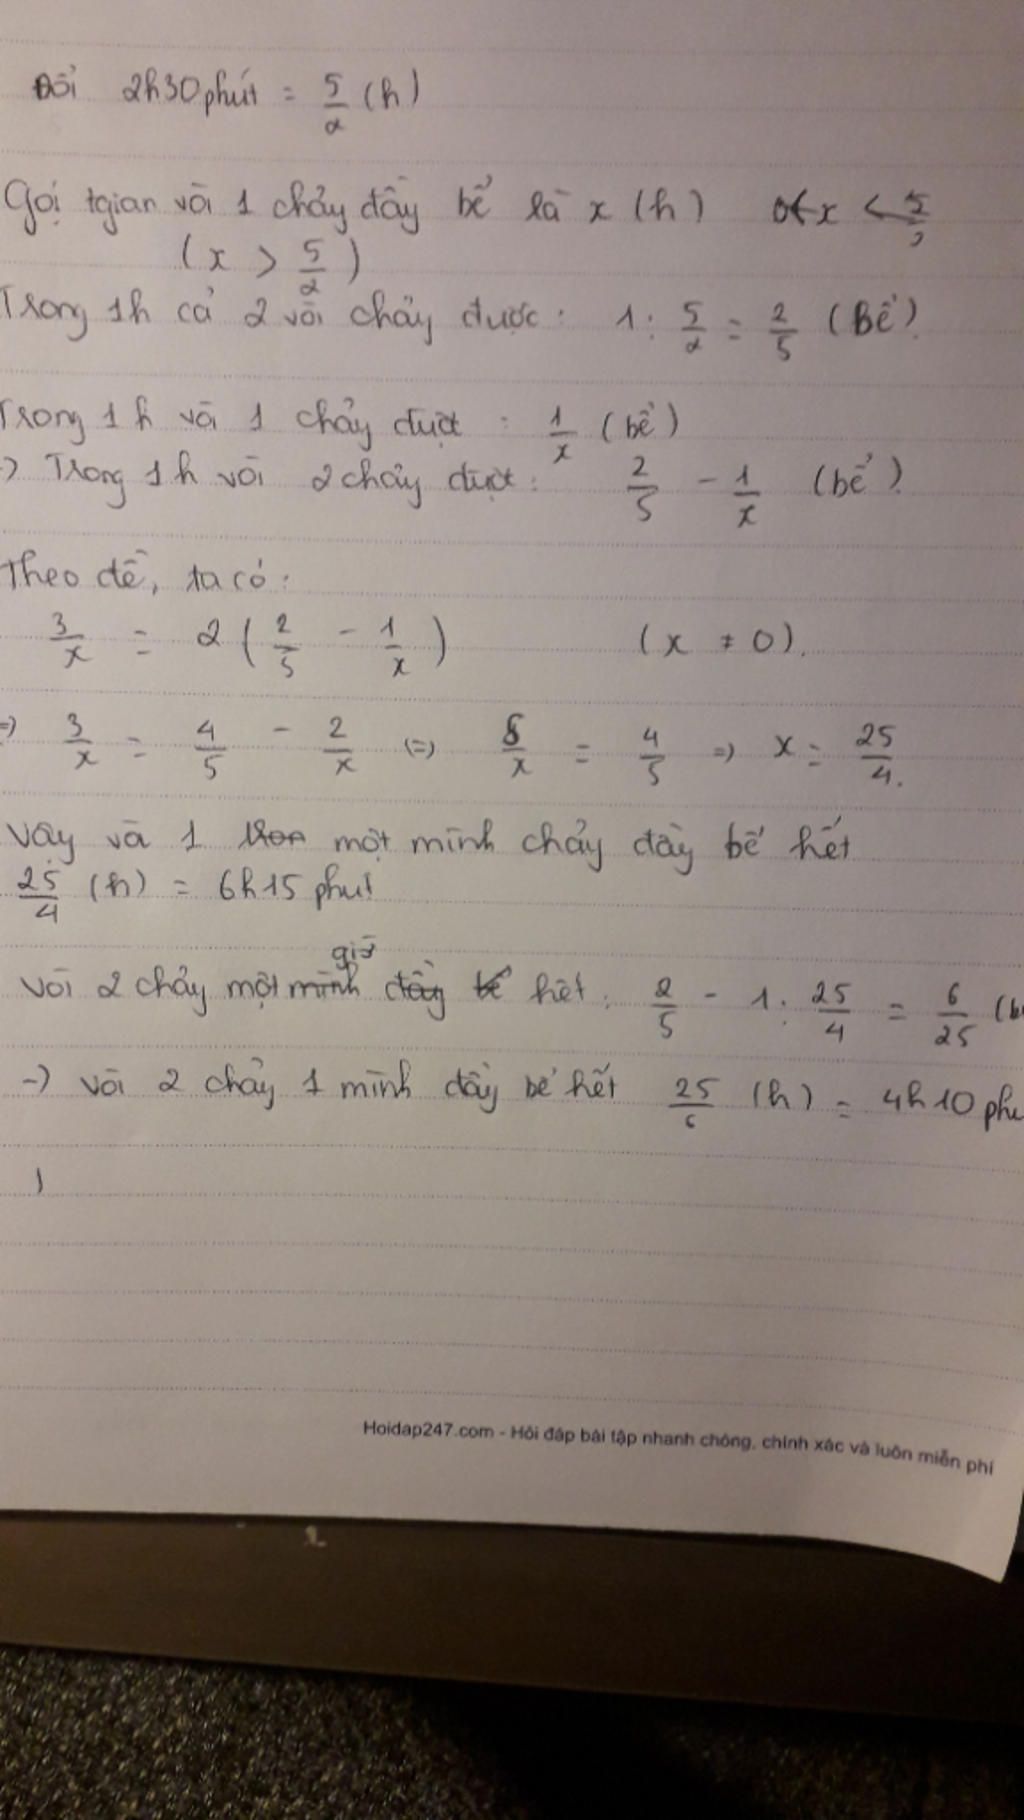 Đổi 2h30phút = 5/2 (h)
Gọi tgian vòi 1 chảy đầy bể là x (h) 0<x < 5/2
(x > 5/2)
Trong 1h cả 2 vòi chảy được: 1: 5/2 = 2/5 (Bể).
Trong 1h vòi 1 chảy được : 1/x (bể)
Trong 1h vòi 2 chảy được: 2/5 - 1/x (bể).
Theo đề, ta có:
3/x = 2 ( 2/5 - 1/x ) (x ≠ 0).
=) 3/x = 4/5 - 2/x (=) 5/x = 4/5 =) x = 25/4.
Vậy vòi 1 một mình chảy đầy bể hết
25/4 (h) = 6h15 phút
giờ
Vòi 2 chảy một mình đầy bể hết: 2/5 - 1: 25/4 = 6/25
-) Vòi 2 chảy 1 mình đầy bể hết 25/6 (h) = 4h10 phú
Hoidap247.com - Hỏi đáp bài tập nhanh chóng, chính xác và luôn miễn phí